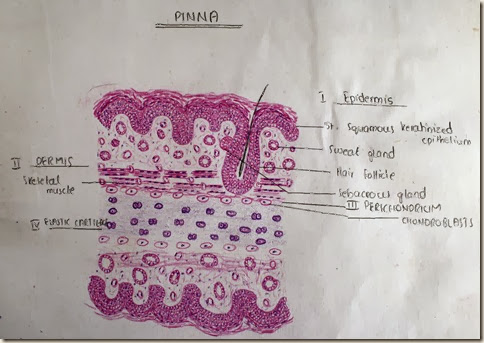 PINNA
I Epidermis
St. Squamous Keratinized
epithelium
Sweat gland
Hair follicle
Sebaceous gland
III PERICHONDRIUM
CHONDROBLASTS
II DERMIS
Skeletal
muscle
IV ELASTIC CARTILAGE